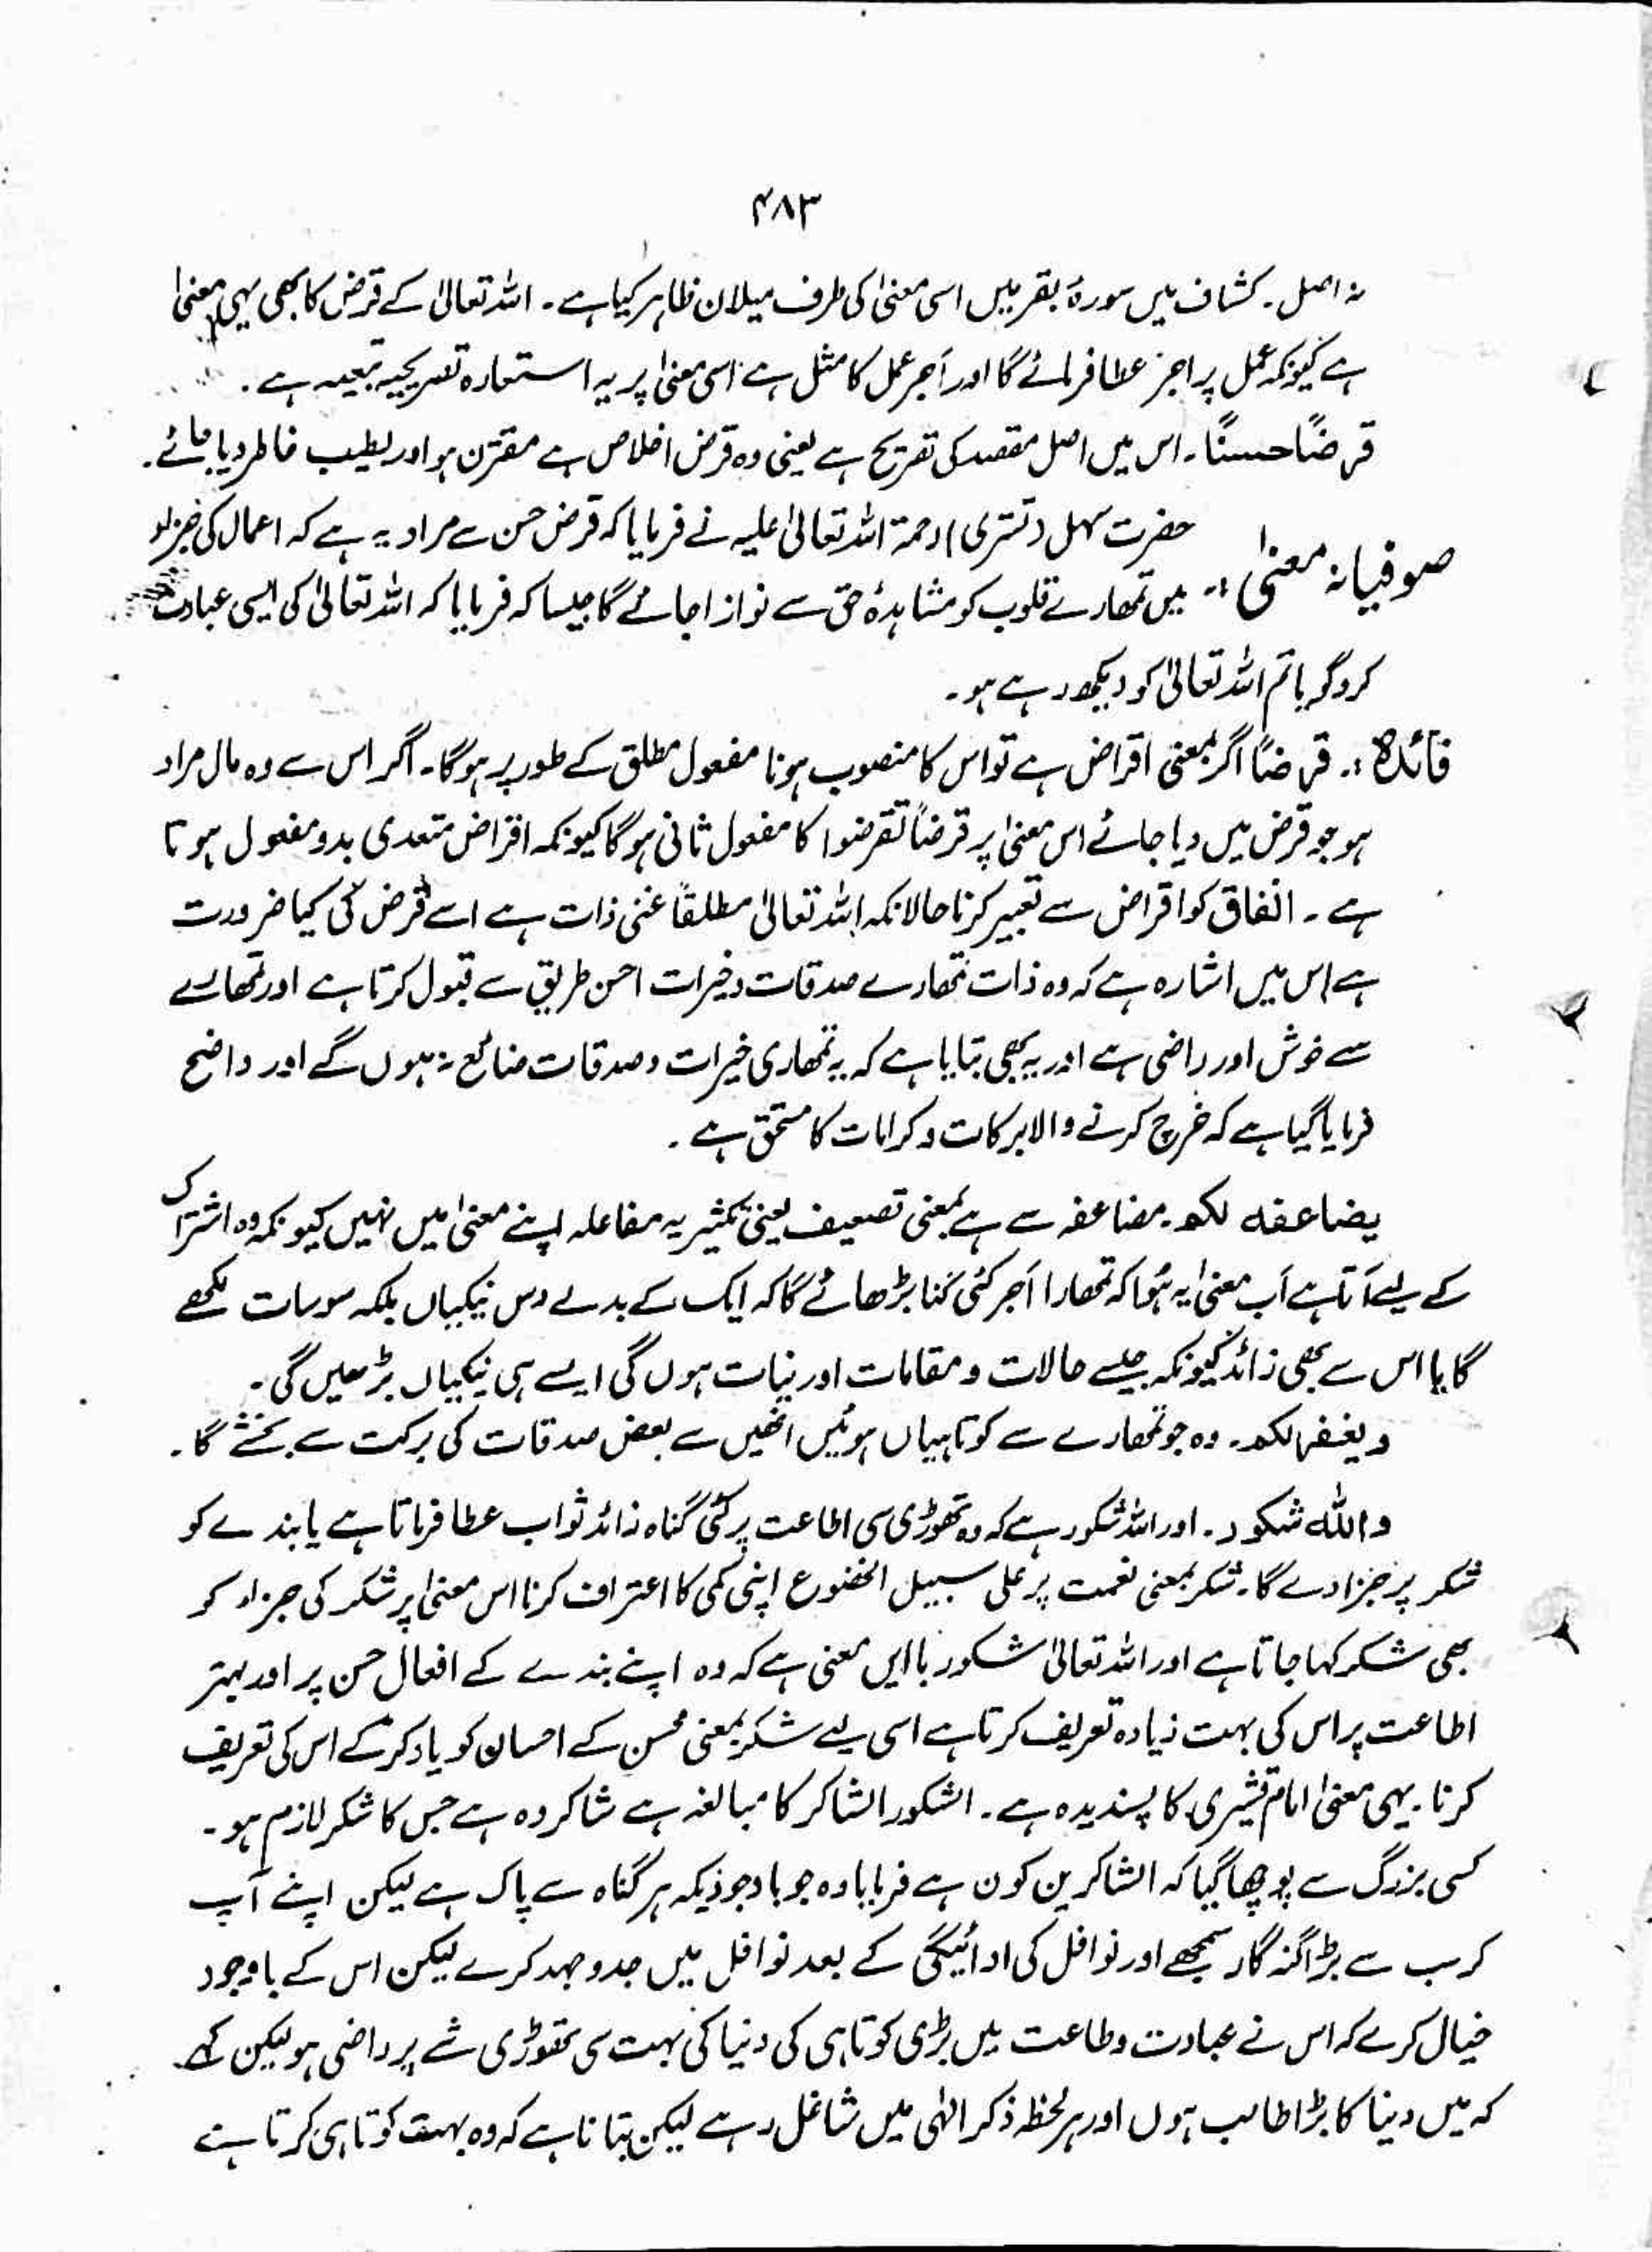 ۴۸۳
نہ اصل ۔ کشاف میں سورۂ بقر میں اسی معنیٰ کی طرف میلان ظاہر کیا ہے ۔ اللہ تعالیٰ کے قرض کا بھی یہی معنیٰ
ہے کیونکہ عمل پر اجر عطا فرمائے گا اور اَجر عمل کا مثل ہے اسی معنیٰ پر یہ استعارہ تصریحیہ تبعیہ ہے ۔
قرضًا حسنًا ۔ اس میں اصل مقصد کی تصریح ہے یعنی وہ قرض اخلاص سے مقترن ہو اور بطیب خاطر دیا جائے ۔
حضرت سہل (تستری) رحمۃ اللہ تعالیٰ علیہ نے فرمایا کہ قرض حسن سے مراد یہ ہے کہ اعمال کی جزا
صوفیانہ معنیٰ :۔ میں تمھارے قلوب کو مشاہدۂ حق سے نوازا جائے گا جیسا کہ فرمایا کہ اللہ تعالیٰ کی ایسی عبادت
کرو گویا تم اللہ تعالیٰ کو دیکھ رہے ہو ۔
فائدہ :۔ قرضًا اگر بمعنی اقراض ہے تو اس کا منصوب ہونا مفعول مطلق کے طور پر ہوگا ۔ اگر اس سے وہ مال مراد
ہو جو قرض میں دیا جائے اس معنیٰ پر قرضاً تقرضوا کا مفعول ثانی ہوگا کیونکہ اقراض متعدی بدو مفعول ہوتا
ہے ۔ انفاق کو اقراض سے تعبیر کرنا حالانکہ اللہ تعالیٰ مطلقاً غنی ذات ہے اسے قرض کی کیا ضرورت
ہے اس میں اشارہ ہے کہ وہ ذات تمھارے صدقات و خیرات احسن طریق سے قبول کرتا ہے اور تمھارے
سے خوش اور راضی ہے اور یہ بھی بتایا ہے کہ یہ تمھاری خیرات و صدقات ضائع نہ ہوں گے اور واضح
فرمایا گیا ہے کہ خرچ کرنے والا برکات و کرامات کا مستحق ہے ۔
یضاعفہ لکم ۔ مضاعفہ سے ہے بمعنی تضعیف یعنی تکثیر یہ مفاعلہ اپنے معنیٰ میں نہیں کیونکہ وہ اشتراک
کے لیے آتا ہے اَب معنیٰ یہ ہُوا کہ تمھارا اَجر کئی گنا بڑھائے گا کہ ایک کے بدلے دس نیکیاں بلکہ سو سات لکھے
گا یا اس سے بھی زائد کیونکہ جیسے حالات و مقامات اور نیات ہوں گی ایسے ہی نیکیاں بڑھیں گی ۔
ویغفرلکم ۔ وہ جو تمھارے سے کوتاہیاں ہوئیں انھیں سے بعض صدقات کی برکت سے بخشے گا ۔
واللہ شکور ۔ اور اللہ شکور ہے کہ وہ تھوڑی سی اطاعت پر کئی گناہ زائد ثواب عطا فرماتا ہے یا بندے کو
شکر پر جزا دے گا ۔ شکر بمعنی نعمت پر علی سبیل الخضوع اپنی کمی کا اعتراف کرنا اس معنیٰ پر شکر کی جزاء کو
بھی شکر کہا جاتا ہے اور اللہ تعالیٰ شکور باایں معنی ہے کہ وہ اپنے بندے کے افعال حسن پر اور بہتر
اطاعت پر اس کی بہت زیادہ تعریف کرتا ہے اسی لیے شکر بمعنی محسن کے احسان کو یاد کرکے اس کی تعریف
کرنا ۔ یہی معنیٰ امام قشیری کا پسندیدہ ہے ۔ الشکور الشاکر کا مبالغہ ہے شاکر وہ ہے جس کا شکر لازم ہو ۔
کسی بزرگ سے پوچھا گیا کہ الشاکرین کون ہے فرمایا وہ جو باوجودیکہ ہر گناہ سے پاک ہے لیکن اپنے آپ
کو سب سے بڑا گنہ گار سمجھے اور نوافل کی ادائیگی کے بعد نوافل میں جدوجہد کرے لیکن اس کے باوجود
خیال کرے کہ اس نے عبادت وطاعت میں بڑی کوتاہی کی دنیا کی بہت سی تھوڑی شے پر راضی ہو لیکن کہے
کہ میں دنیا کا بڑا طالب ہوں اور ہر لحظہ ذکر الٰہی میں شاغل رہے لیکن بتاتا ہے کہ وہ بہت کوتاہی کرتا ہے